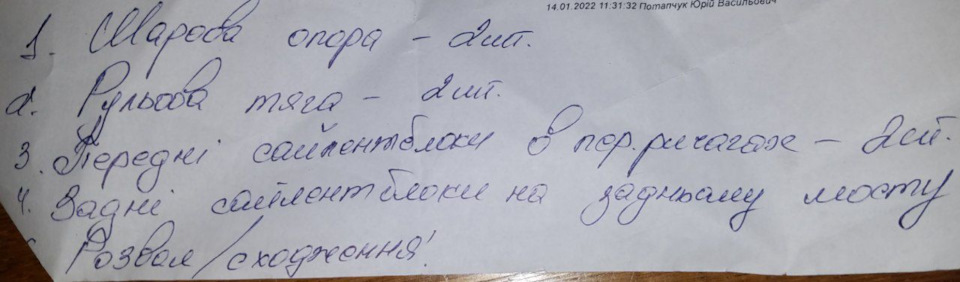 14.01.2022 11:31:32 Потапчук Юрій Васильович
1. Шарова опора - 2шт.
2. Рульова тяга - 2шт.
3. Передні сайлентблоки в пер. ричагах - 2шт.
4. Задні сайлентблоки на задньому мосту
Розвал/сходження!